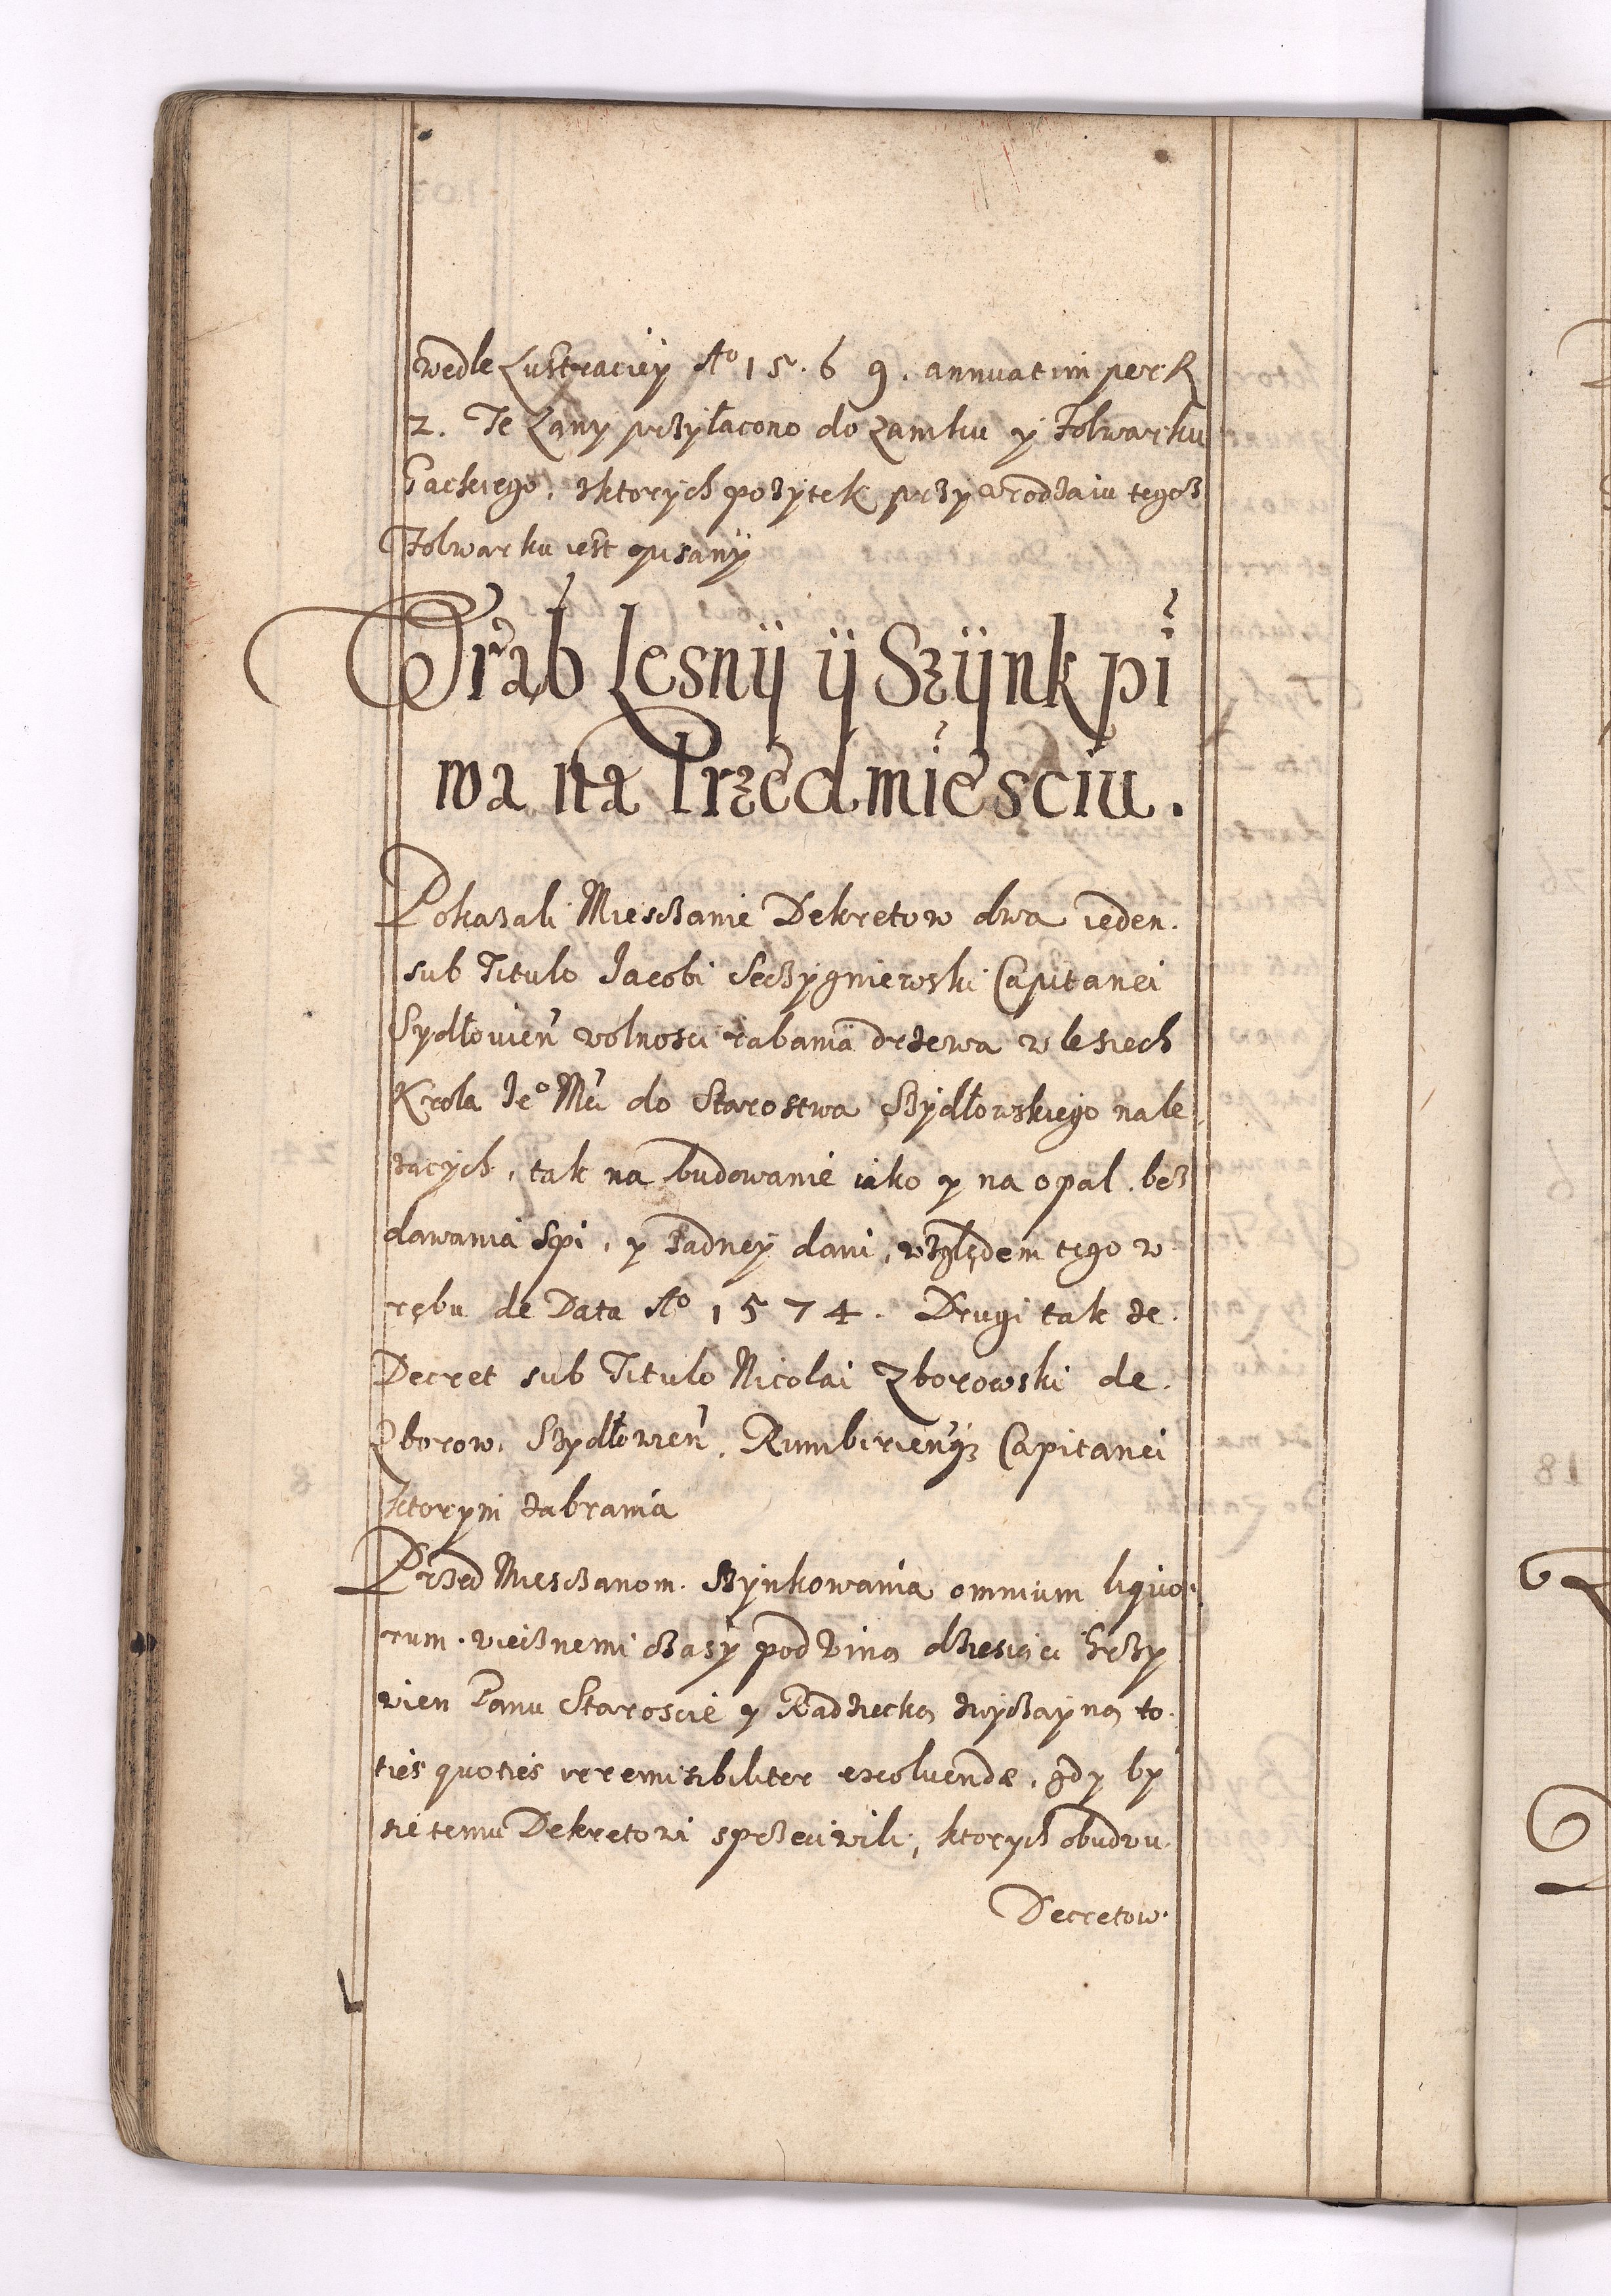 wedle Lustraciey Aº 15.6 9. annuatim per R
2. Te Łany przyłacono do zamku y Folwarku
Packiego. zktorych pożytek przy urodzaiu tegosz
Folwarku iest opisany
Wrąb Lesnij ij Szijnk pi
wa na Przedmiesciu.
Pokazali Miesczanie Dekretow dwa ieden.
sub Titulo Jacobi Seczygniewski Capitanei
Sydłovien̄ volnosci rabania drzewa w lesiech
Krola Jeº Mci do Starostwa Szydłowskiego nale
zacych, tak na budowanie iako y na opal. bez
dawania Spi, y zadney dani, względem tego w
rębu de Data Aº 1574. Drugi tak ze.
Decret sub Titulo Nicolai Zborowski de.
Zborow. Szydłowien̄. Capitanei
ktorym zabrania
Przed Miesczanom. Szynkowania omnium liquo
rum. wieisnemi czasy pod Viną dziesiąci Grzy
vien Panu Staroscie y Radziecką zwyczayną to.
ties quoties irremisibiliter exoluendæ, gdy by
sie temu Dekretowi sprzeciwili, ktorych obudvu.
Decretow.